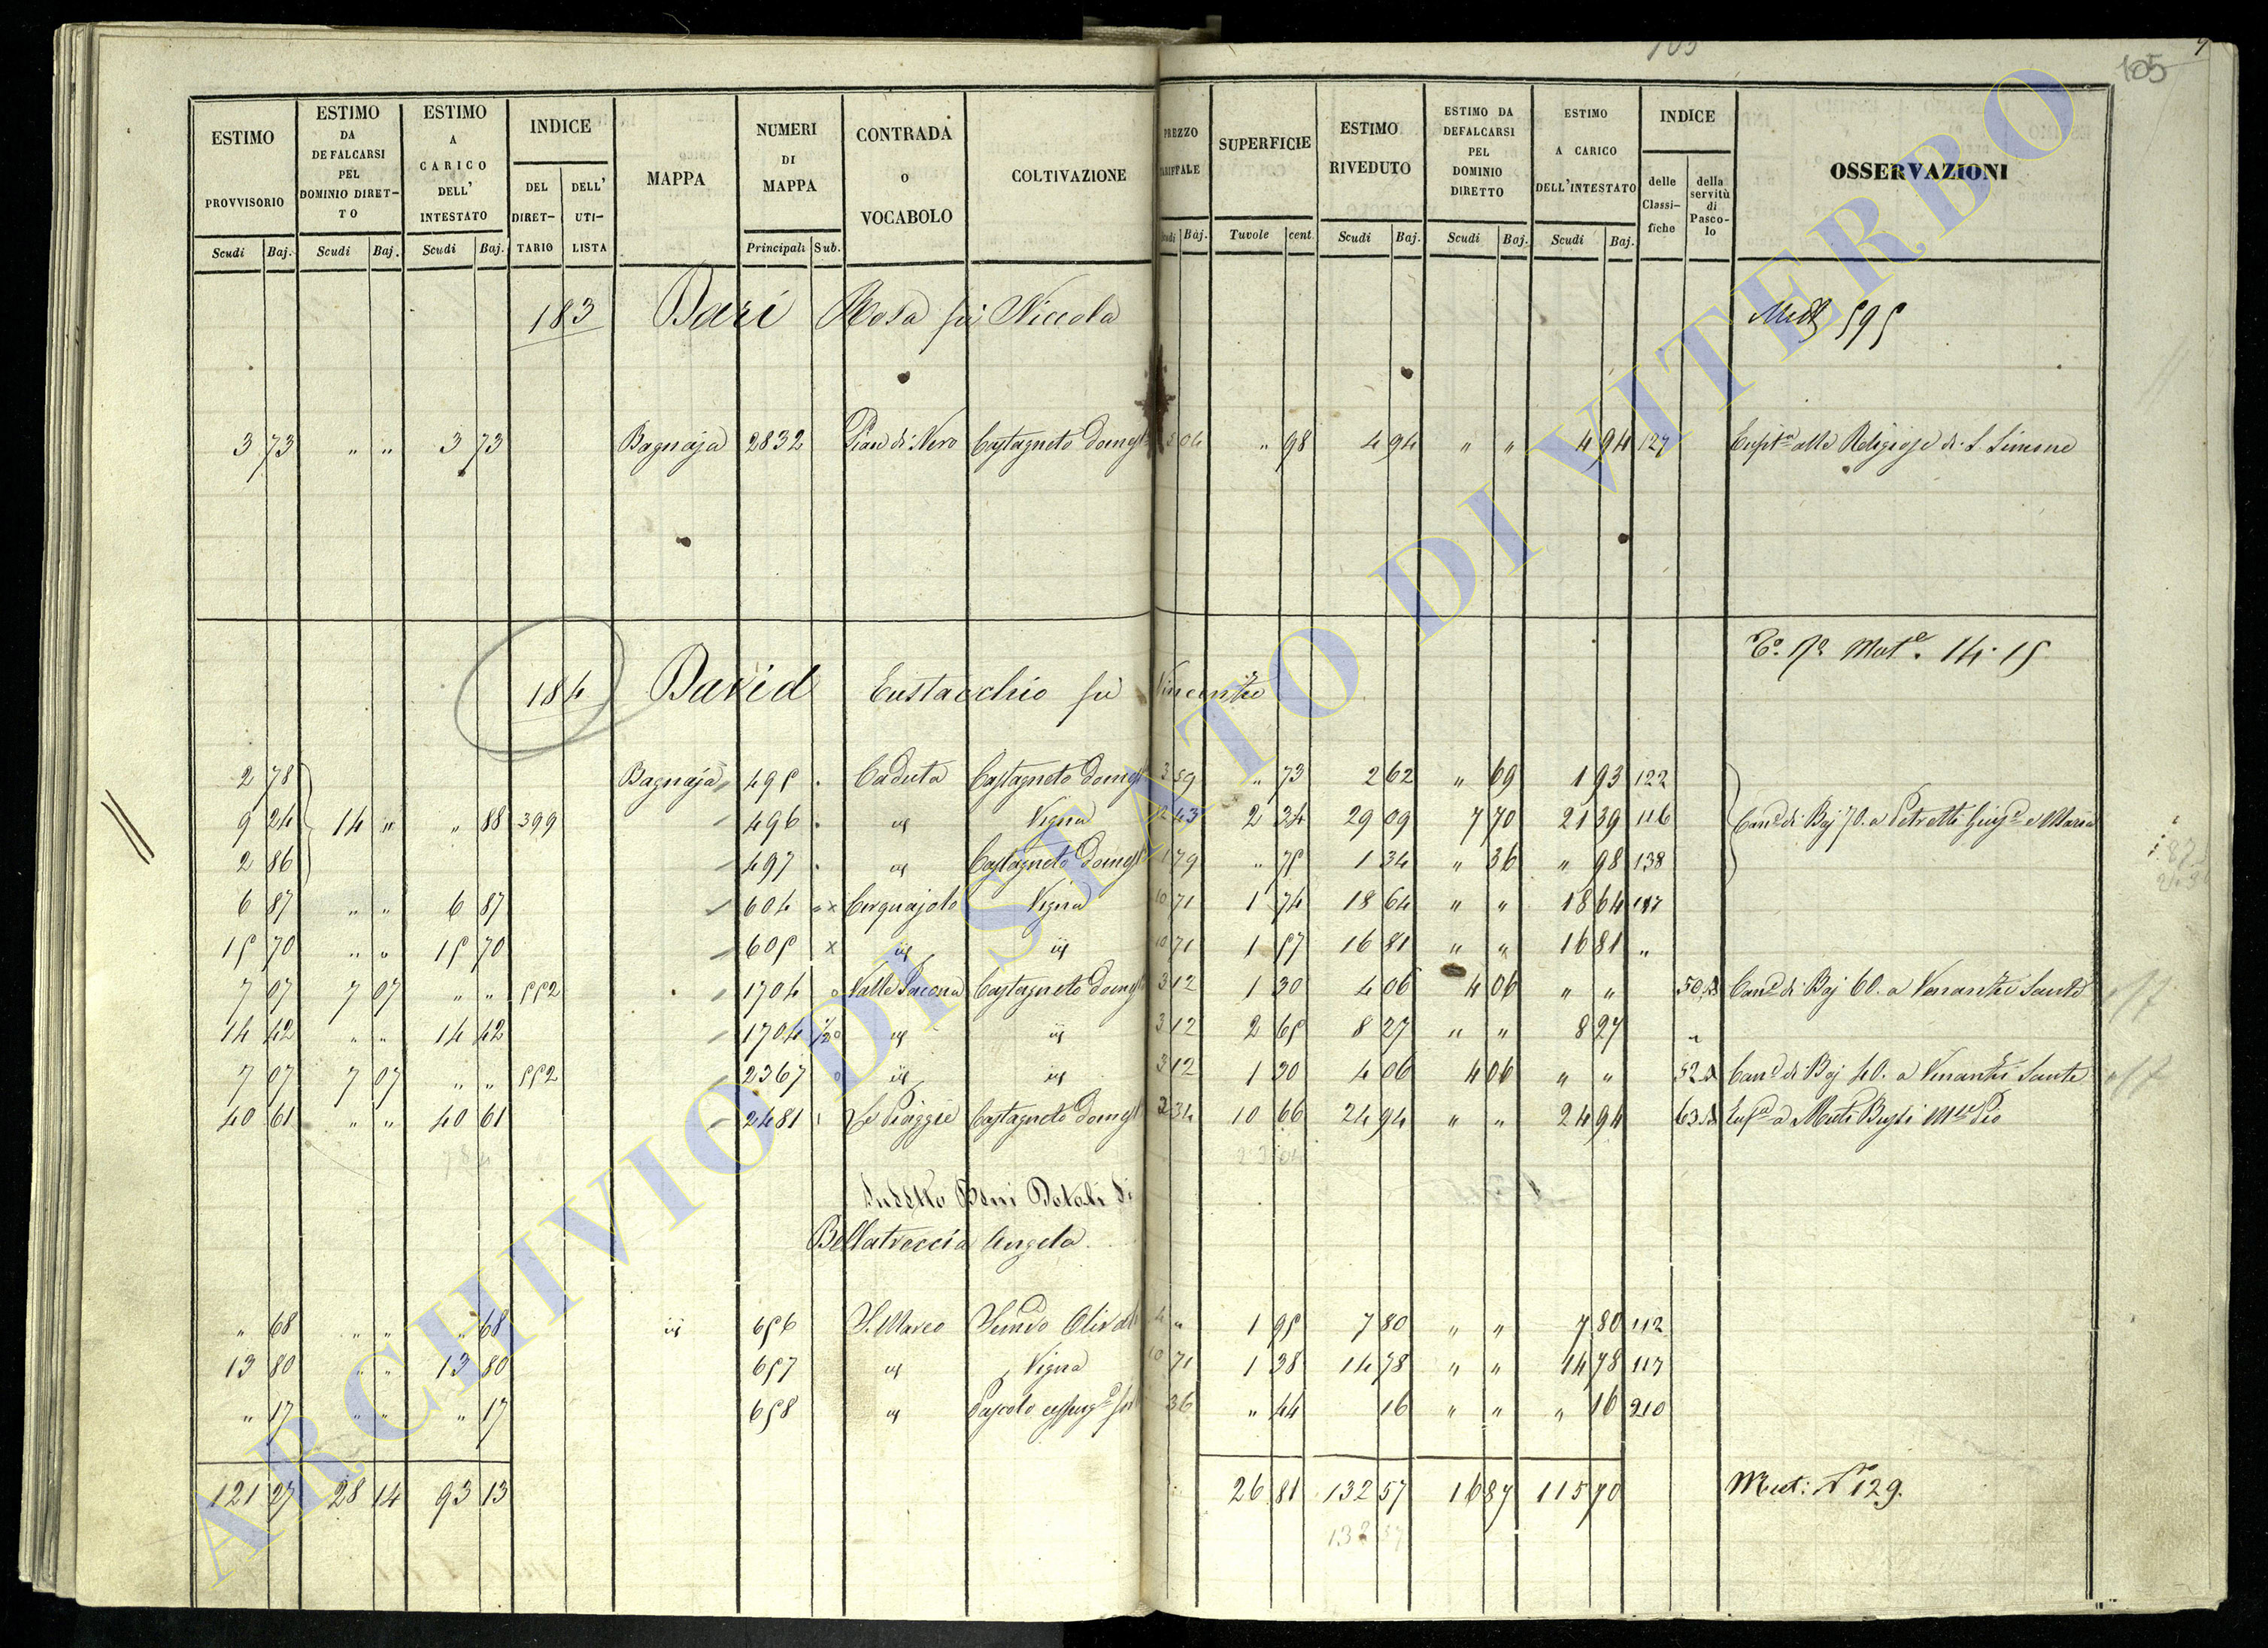 105
105
ESTIMO PROVVISORIO | ESTIMO DA DEFALCARSI PEL DOMINIO DIRETTO | ESTIMO A CARICO DELL' INTESTATO | INDICE | MAPPA | NUMERI DI MAPPA | CONTRADA O VOCABOLO | COLTIVAZIONE | PREZZO TARIFFALE | SUPERFICIE | ESTIMO RIVEDUTO | ESTIMO DA DEFALCARSI PEL DOMINIO DIRETTO | ESTIMO A CARICO DELL'INTESTATO | INDICE | OSSERVAZIONI
DEL DIRETTARIO | DELL' UTILISTA | delle Classifiche | della servitù di Pascolo
Scudi | Baj. | Scudi | Baj. | Scudi | Baj. | Principali | Sub. | Scudi | Baj. | Tavole | cent. | Scudi | Baj. | Scudi | Baj. | Scudi | Baj.
183 Bari Rosa fù Niccola 595
3 73 " " 3 73 Bagnaja 2832 Pian di Nero Castagneto domest " 98 4 94 " " 4 94 127 alle Religiose di S. Simone
Mut.e 14. 15
184 David Eustacchio fù Vincenzo
2 78 Bagnaja 495 Caduta Castagneto domest 3 59 " 73 2 62 " 69 1 93 122
9 24 14 " " 88 399 496 Vigna 12 43 2 34 29 09 7 70 21 39 116 Can.e di Baj 70. a Petretti Giusp.e e Maria
2 86 497 Castagneto domest 1 79 " 75 1 34 " 36 " 98 138
6 87 " " 6 87 604 x Cerquajolo Vigna 10 71 1 74 18 64 " " 18 64 117
15 70 " " 15 70 605 x 10 71 1 57 16 81 " " 16 81 "
7 07 7 07 " " 552 1704 Castagneto domest 3 12 1 30 4 06 4 06 " " 50 Can.e di Baj 60. a Venanzi Sante
14 42 " " 14 42 1704 1/2 3 12 2 65 8 27 " " 8 27 "
7 07 7 07 " " 552 2367 3 12 1 30 4 06 4 06 " " 52 Can.e di Baj 40. a Venanzi Sante
40 61 " " 40 61 2481 Le Piaggie Castagneto domest 2 34 10 66 24 94 " " 24 94 63
Sudetto Beni Dotali di
Bellatreccia Angela
" 68 " " " 68 656 S. Marco 4 " 1 95 7 80 " " 7 80 112
13 80 " " 13 80 657 Vigna 10 71 1 38 14 78 " " 14 78 117
" 17 " " " 17 658 Pascolo 36 " 44 16 " " " 16 210
121 27 28 14 93 13 26 81 132 57 16 87 115 70 Mut: N° 129.
ARCHIVIO DI STATO DI VITERBO